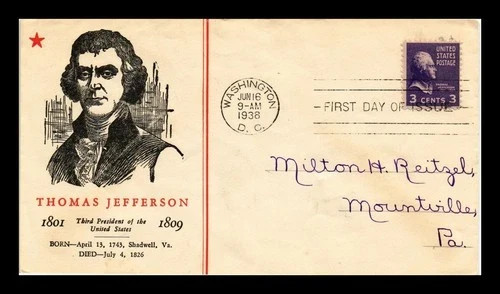 THOMAS JEFFERSON
1801 Third President of the United States 1809
BORN—April 13, 1743, Shadwell, Va.
DIED—July 4, 1826
WASHINGTON
JUN 16
9-AM
1938
D. C.
FIRST DAY OF ISSUE
UNITED
STATES
POSTAGE
3 CENTS 3
Milton H. Reitzel,
Mountville,
Pa.